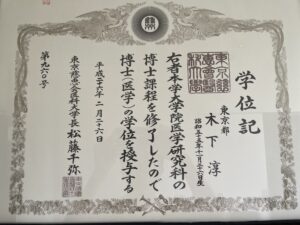 学位記
東京都
木下 淳
昭和五十五年十一月二十六日生
右者本学大学院医学研究科の
博士課程を修了したので
博士(医学)の学位を授与する
平成二十六年二月二十六日
東京慈恵会医科大学長 松藤千弥
第九六〇号